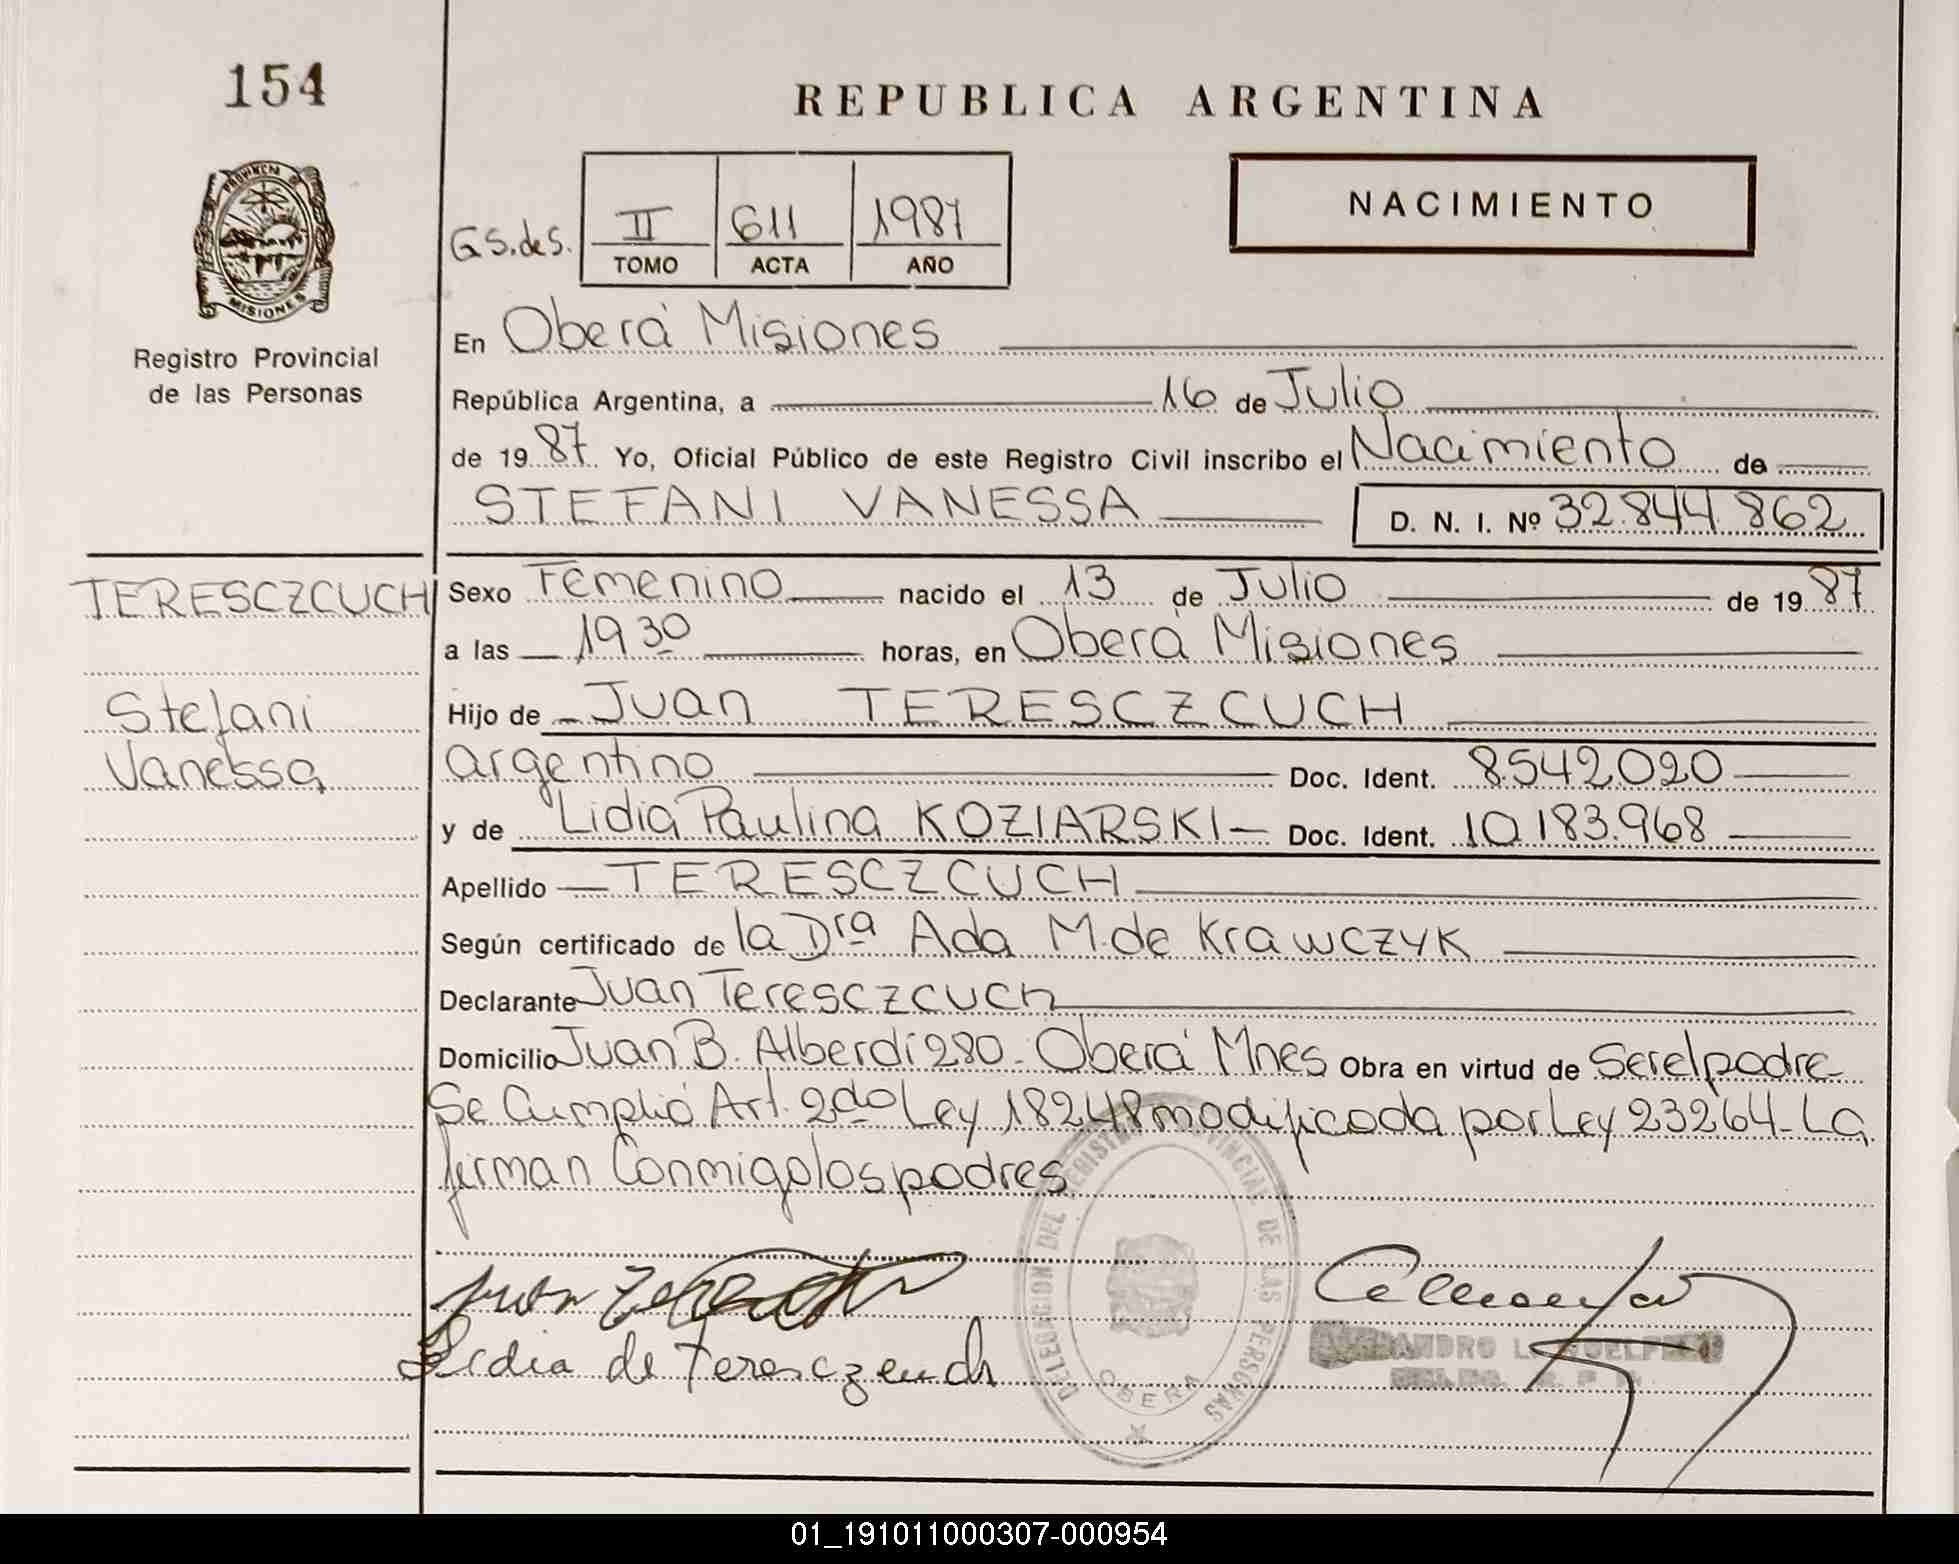 154
REPUBLICA ARGENTINA
PROVINCIA D
MISIONES
Registro Provincial
de las Personas
NACIMIENTO
GS.des. II 611 1987
TOMO ACTA AÑO
En Oberá Misiones
República Argentina, a 16 de Julio
de 1987 Yo, Oficial Público de este Registro Civil inscribo el Nacimiento de
STEFANI VANESSA D. N. I. Nº 32.844.862
TERESCZCUCH
Stefani
Vanessa
Sexo Femenino nacido el 13 de Julio de 1987
a las 19 30 horas, en Oberá Misiones
Hijo de Juan TERESCZCUCH
argentino Doc. Ident. 8.542.020
y de Lidia Paulina KOZIARSKI Doc. Ident. 10.183.968
Apellido TERESCZCUCH
Según certificado de la Dra Ada M. de Krawczyk
Declarante Juan Teresczcuch
Domicilio Juan B. Alberdi 280 - Oberá Mnes Obra en virtud de Ser el padre
Se Cumplió Art. 2do Ley 18248 modificada por Ley 23264 - La
firman Conmigo los padres
Juan
Lidia de Teresczcuch
DELEGACION DEL REGISTRO PROVINCIAL DE LAS PERSONAS
OBERA
01_191011000307-000954